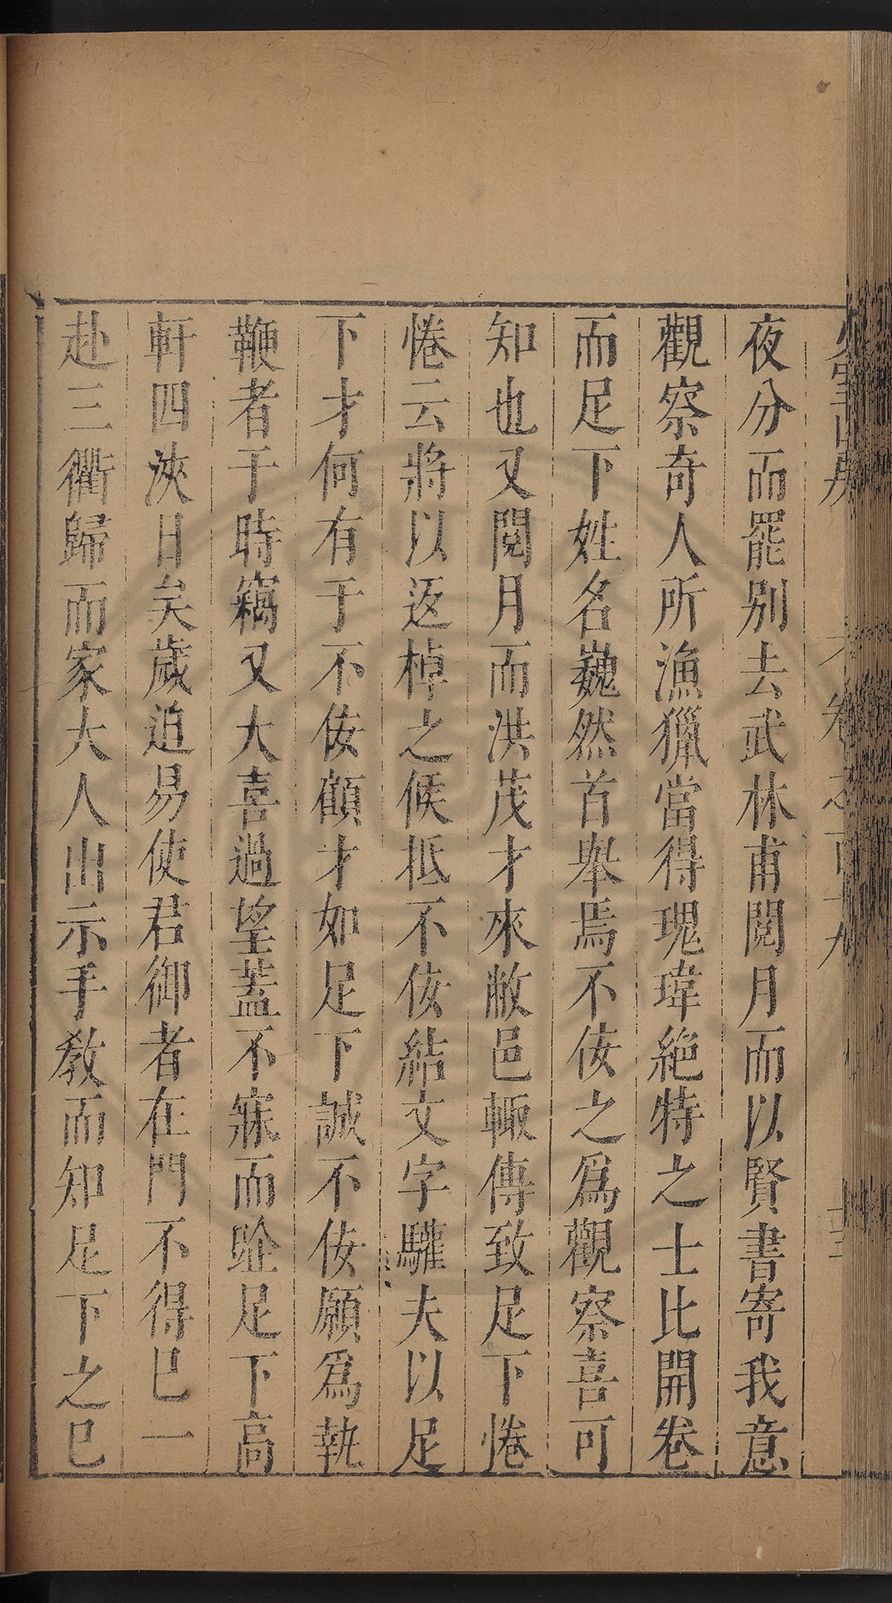 卷之百十九
夜分而罷别去武林甫閱月而以賢書寄我意
觀察奇人所漁獵當得瑰瑋絶特之士比開卷
而足下姓名巍然首舉焉不佞之爲觀察喜可
知也又閱月而洪茂才來敝邑輙傳致足下惓
惓云將以返棹之候抵不佞結文字驩夫以足
下才何有于不佞顧才如足下誠不佞願爲執
鞭者于時竊又大喜過望蓋不寐而跂足下高
軒四浹日矣歲迫易使君御者在門不得已一
赴三衢歸而家大人出示手教而知足下之已